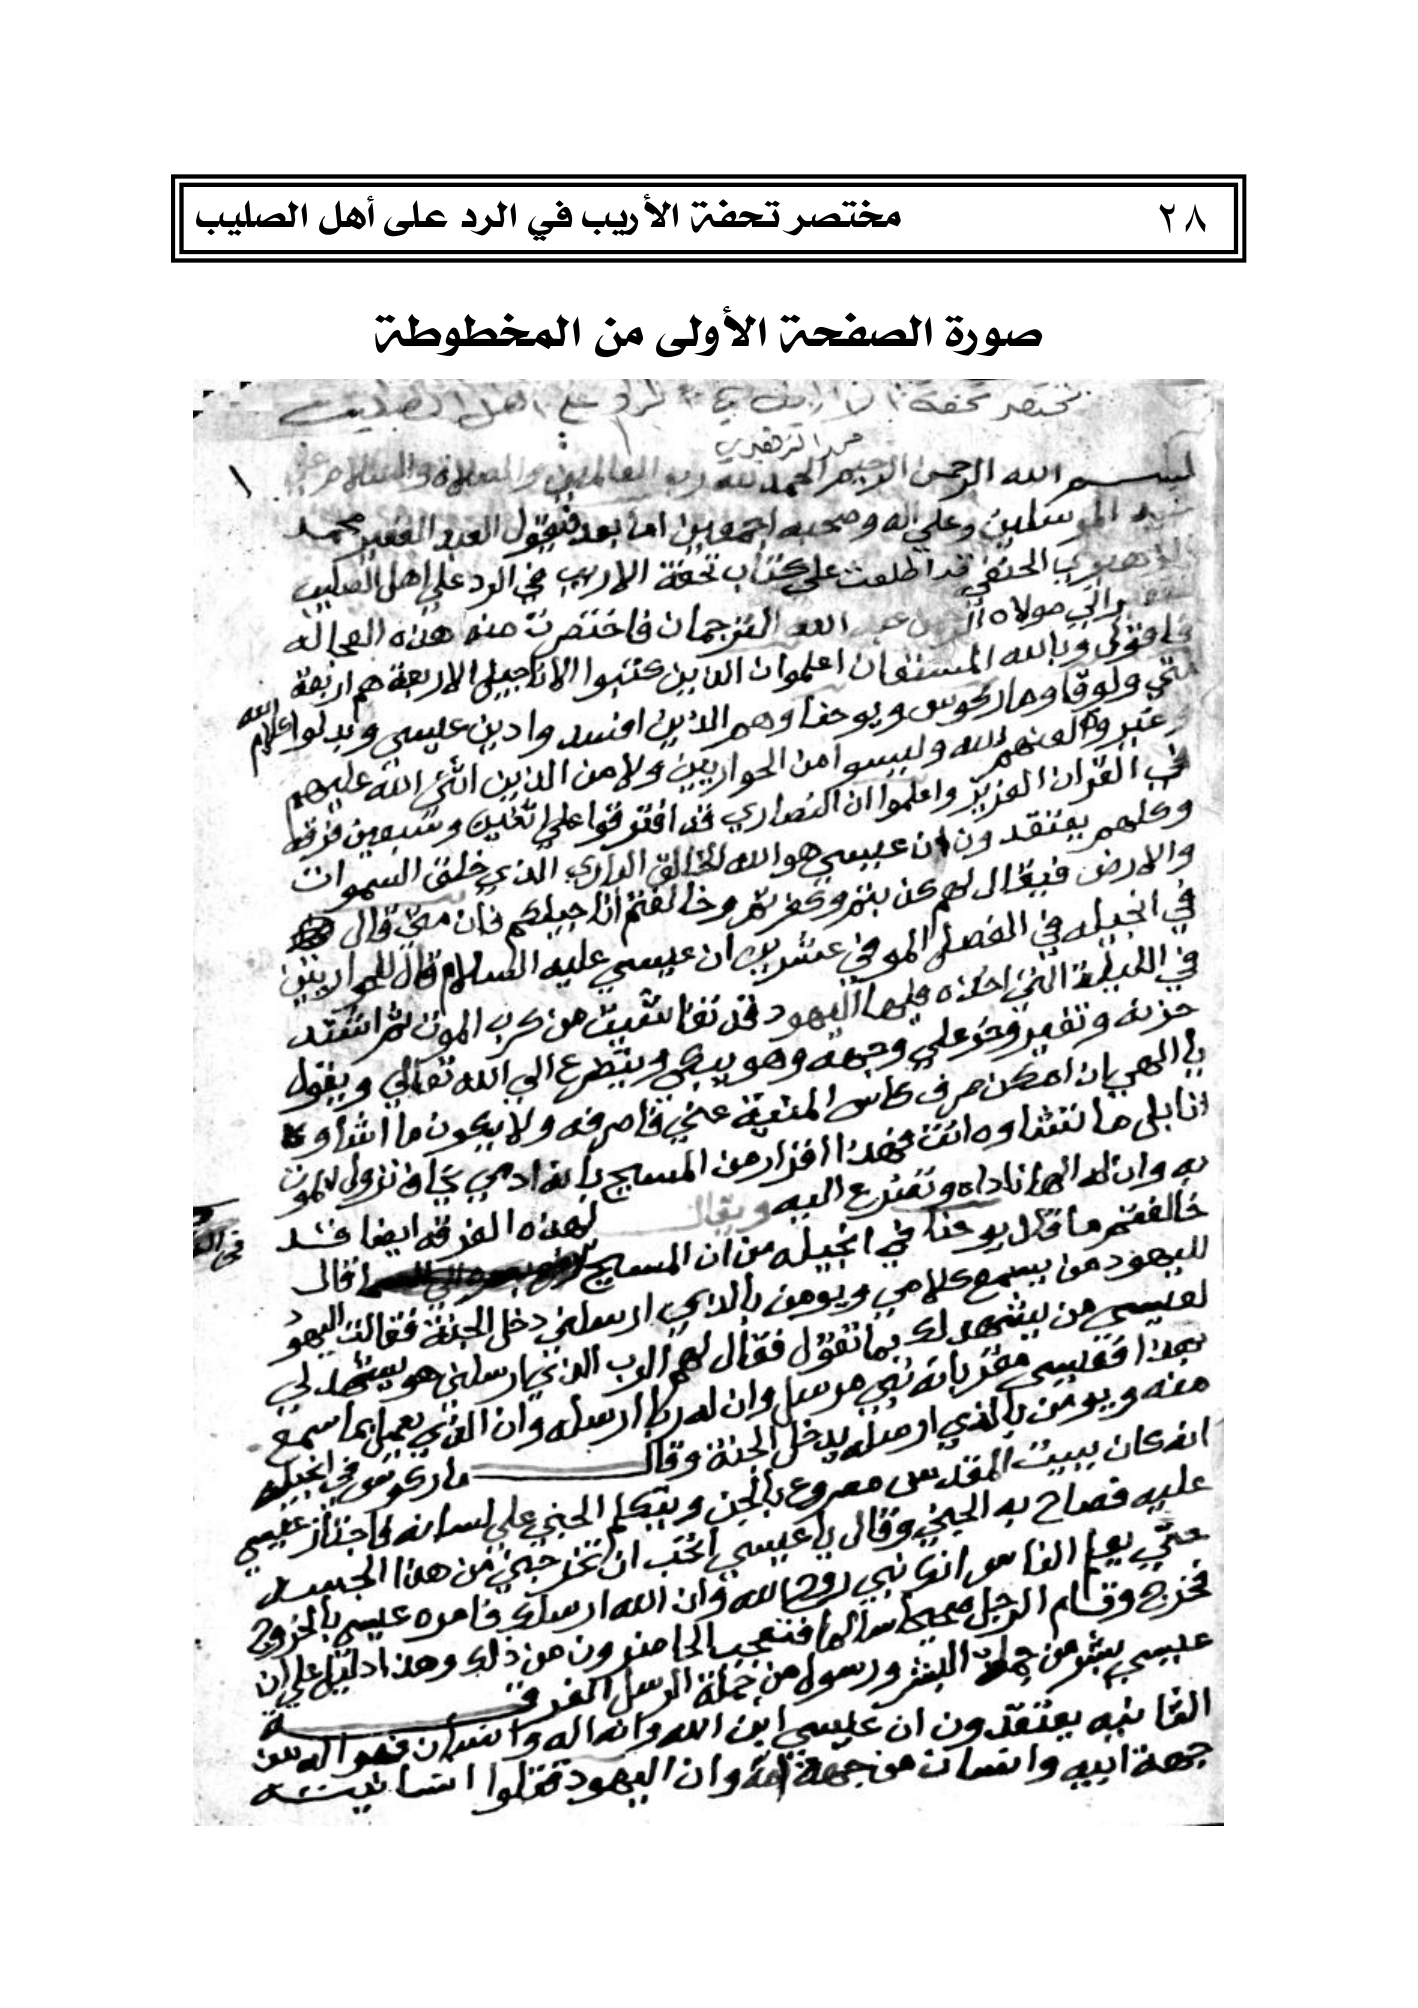 ٢٨
مختصر تحفة الأريب في الرد على أهل الصليب
صورة الصفحة الأولى من المخطوطة
مختصر تحفة الاريب في الرد على اهل الصليب
١
بسم الله الرحمن الرحيم الحمد لله رب العالمين والصلاة والسلام علي
سيد المرسلين وعلي اله وصحبه اجمعين اما بعد فيقول العبد الفقير محمد
الحنفي قد اطلعت علي كتاب تحفة الاريب في الرد علي اهل الصليب
الي مولاه عبد الله الترجمان فاختصرت منه هذه العجالة
فاقول وبالله المستعان اعلموا ان الذين كتبوا الاناجيل الاربعة هم اربعة
متي ولوقا وماركوس ويوحنا وهم الذين افسدوا دين عيسي وبدلوا كلام الله
وغيروه لعنهم الله وليسوا من الحواريين ولا من الذين اثني الله عليهم
في القران العزيز واعلموا ان النصاري قد افترقوا علي اثنين وسبعين فرقة
وكلهم يعتقدون ان عيسي هو الله الخالق الباري الذي خلق السموات
والارض فيقال لهم كذبتم وكفرتم وخالفتم اناجيلكم فان متي قال
في انجيله في الفصل الموفي عشرين ان عيسي عليه السلام قال للحواريين
في الليلة التي اخذه فيها اليهود قد تغاشيت من كرب الموت ثم اشتد
حزنه وتغير وخر علي وجهه وهو يبكي ويتضرع الي الله تعالي ويقول
يا الهي ان امكن صرف كاس المنية عني فاصرفه ولا يكون ما اشا
انا بل ما تشاوه انت فهذا اقرار من المسيح بانه ادمي يخاف نزول الموت
به وان له الها ناداه وتضرع اليه ويقال لهذه الفرقة ايضا فقد
خالفتم ما قال يوحنا في انجيله من ان المسيح قال
لليهود من يسمع كلامي ويومن بالذي ارسلني دخل الجنة فقالت اليهود
لعيسي من يشهد لك بما تقول فقال لهم الرب الذي ارسلني هو يشهد لي
بهذا فعيسي مقر بانه نبي مرسل وان له ربا ارسله وان الذي يعمل بما سمع
منه ويومن بالذي ارسله يدخل الجنة وقال ماركوس في انجيله
انه كان ببيت المقدس مصروع بالجن ويتكلم الجني علي لسانه فاجتاز عيسي
عليه فصاح به الجني وقال يا عيسي اتحب ان تخرجني من هذا الجسد
حتي يعلم الناس انك نبي وروح الله وان الله ارسلك فامره عيسي بالخروج
فخرج وقام الرجل صحيحا سالما فتعجب الحاضرون من ذلك وهذا دليل علي ان
عيسي بشر من جملة البشر ورسول من جملة الرسل الفرقة
الثانيه يعتقدون ان عيسي ابن الله وانه اله وانسان فهو اله من
جهة ابيه وانسان من جهة امه وان اليهود قتلوا انسانيته